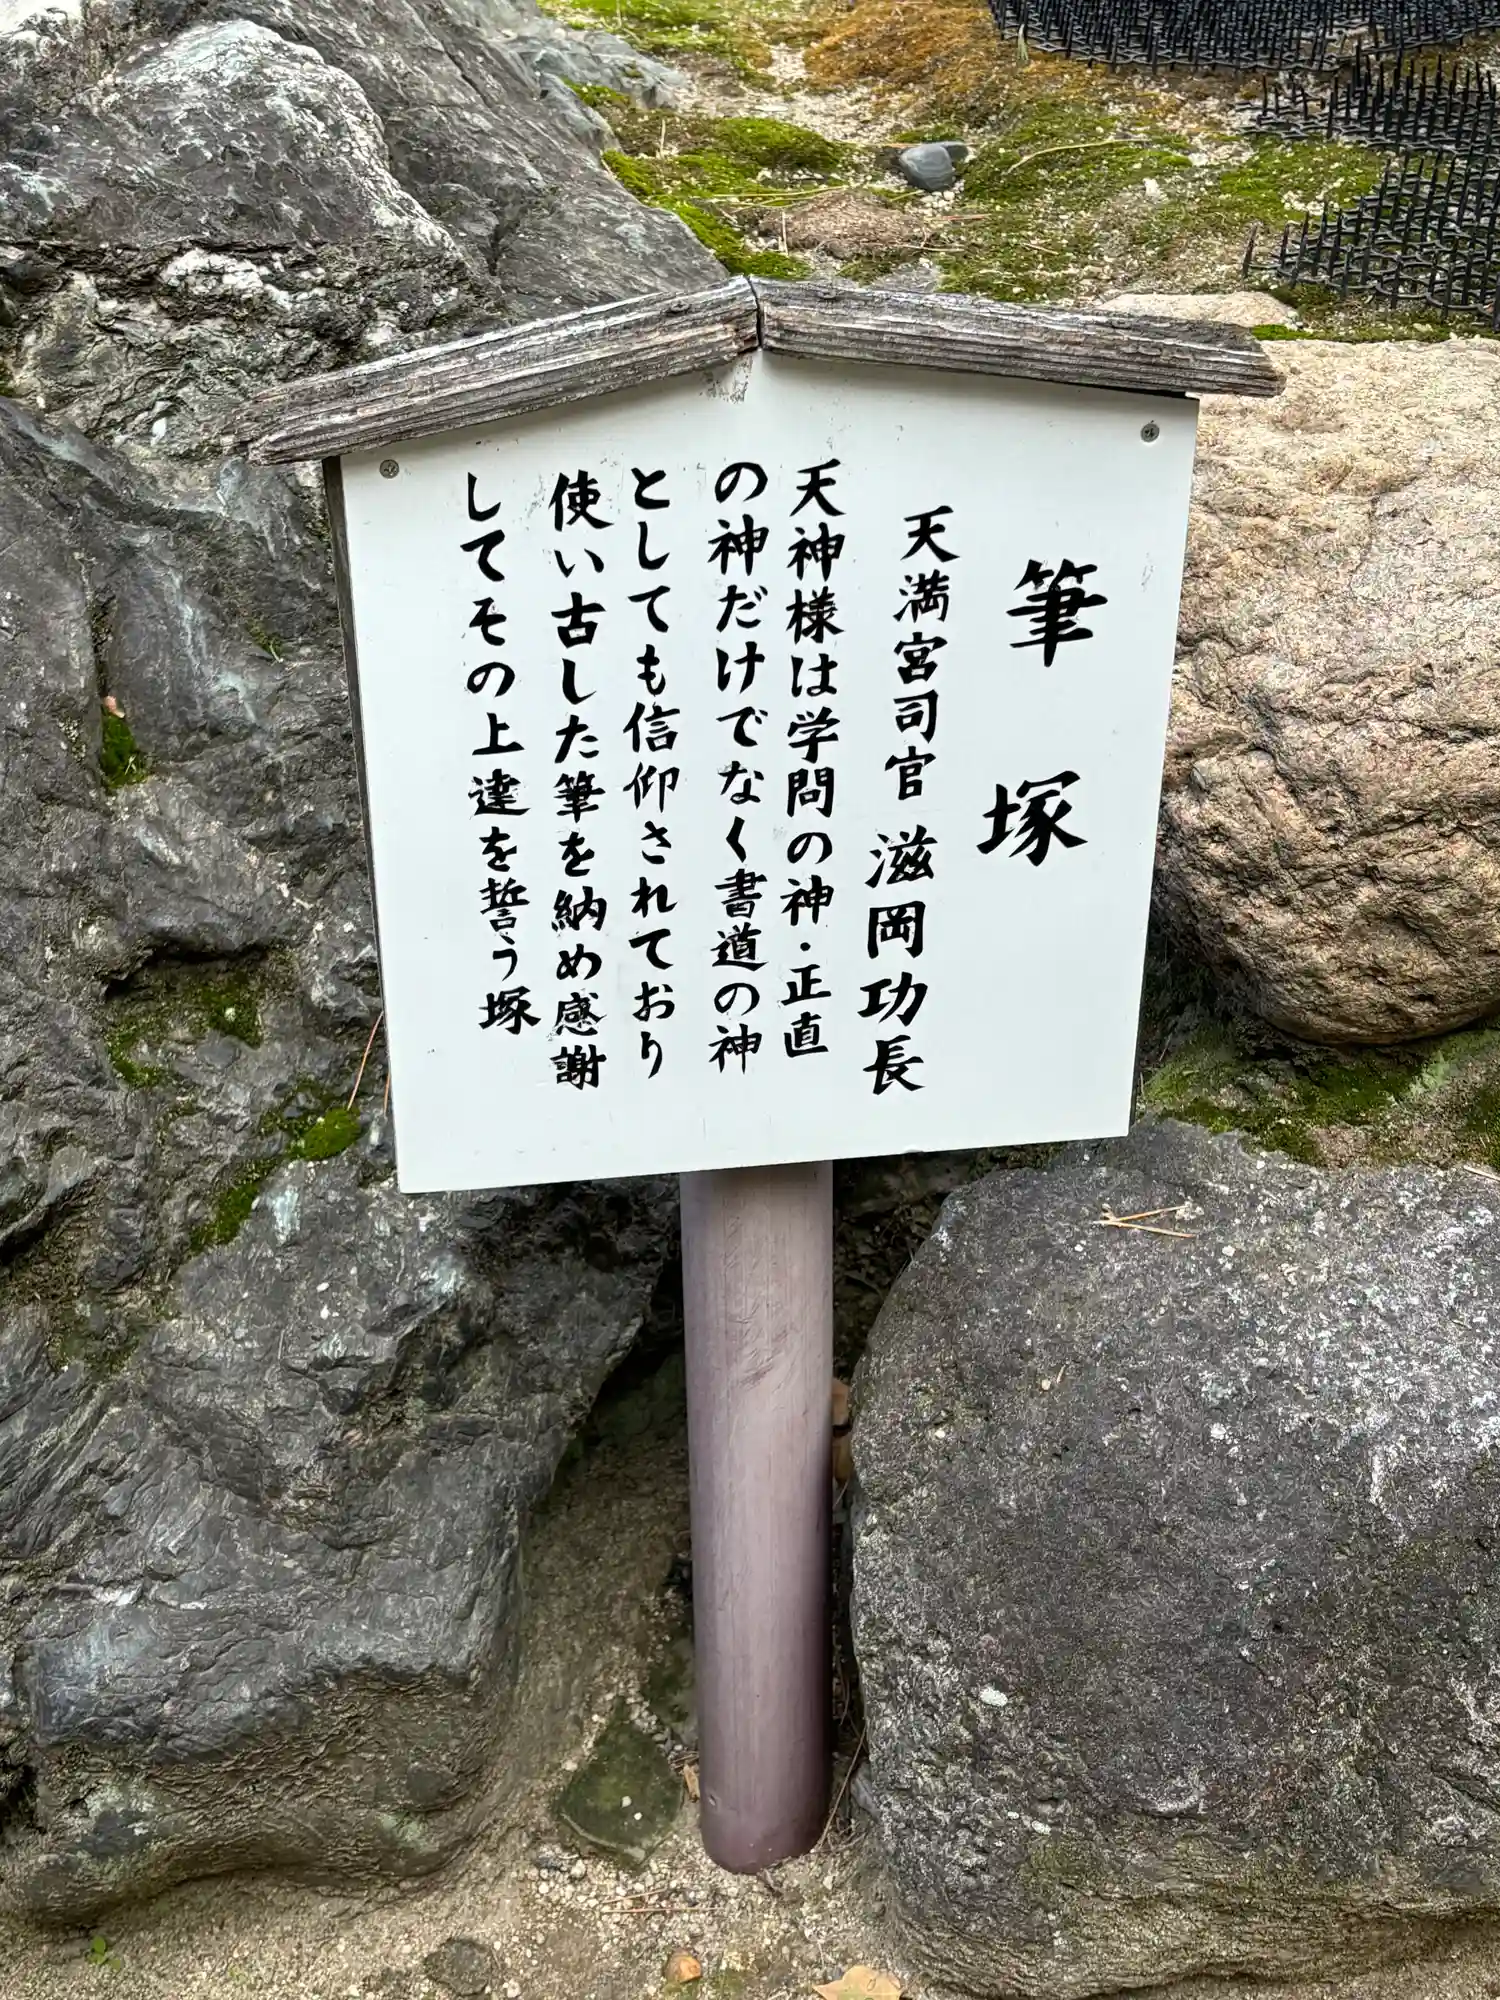 筆塚
天満宮司官 滋岡功長
天神様は学問の神・正直
の神だけでなく書道の神
としても信仰されており
使い古した筆を納め感謝
してその上達を誓う塚